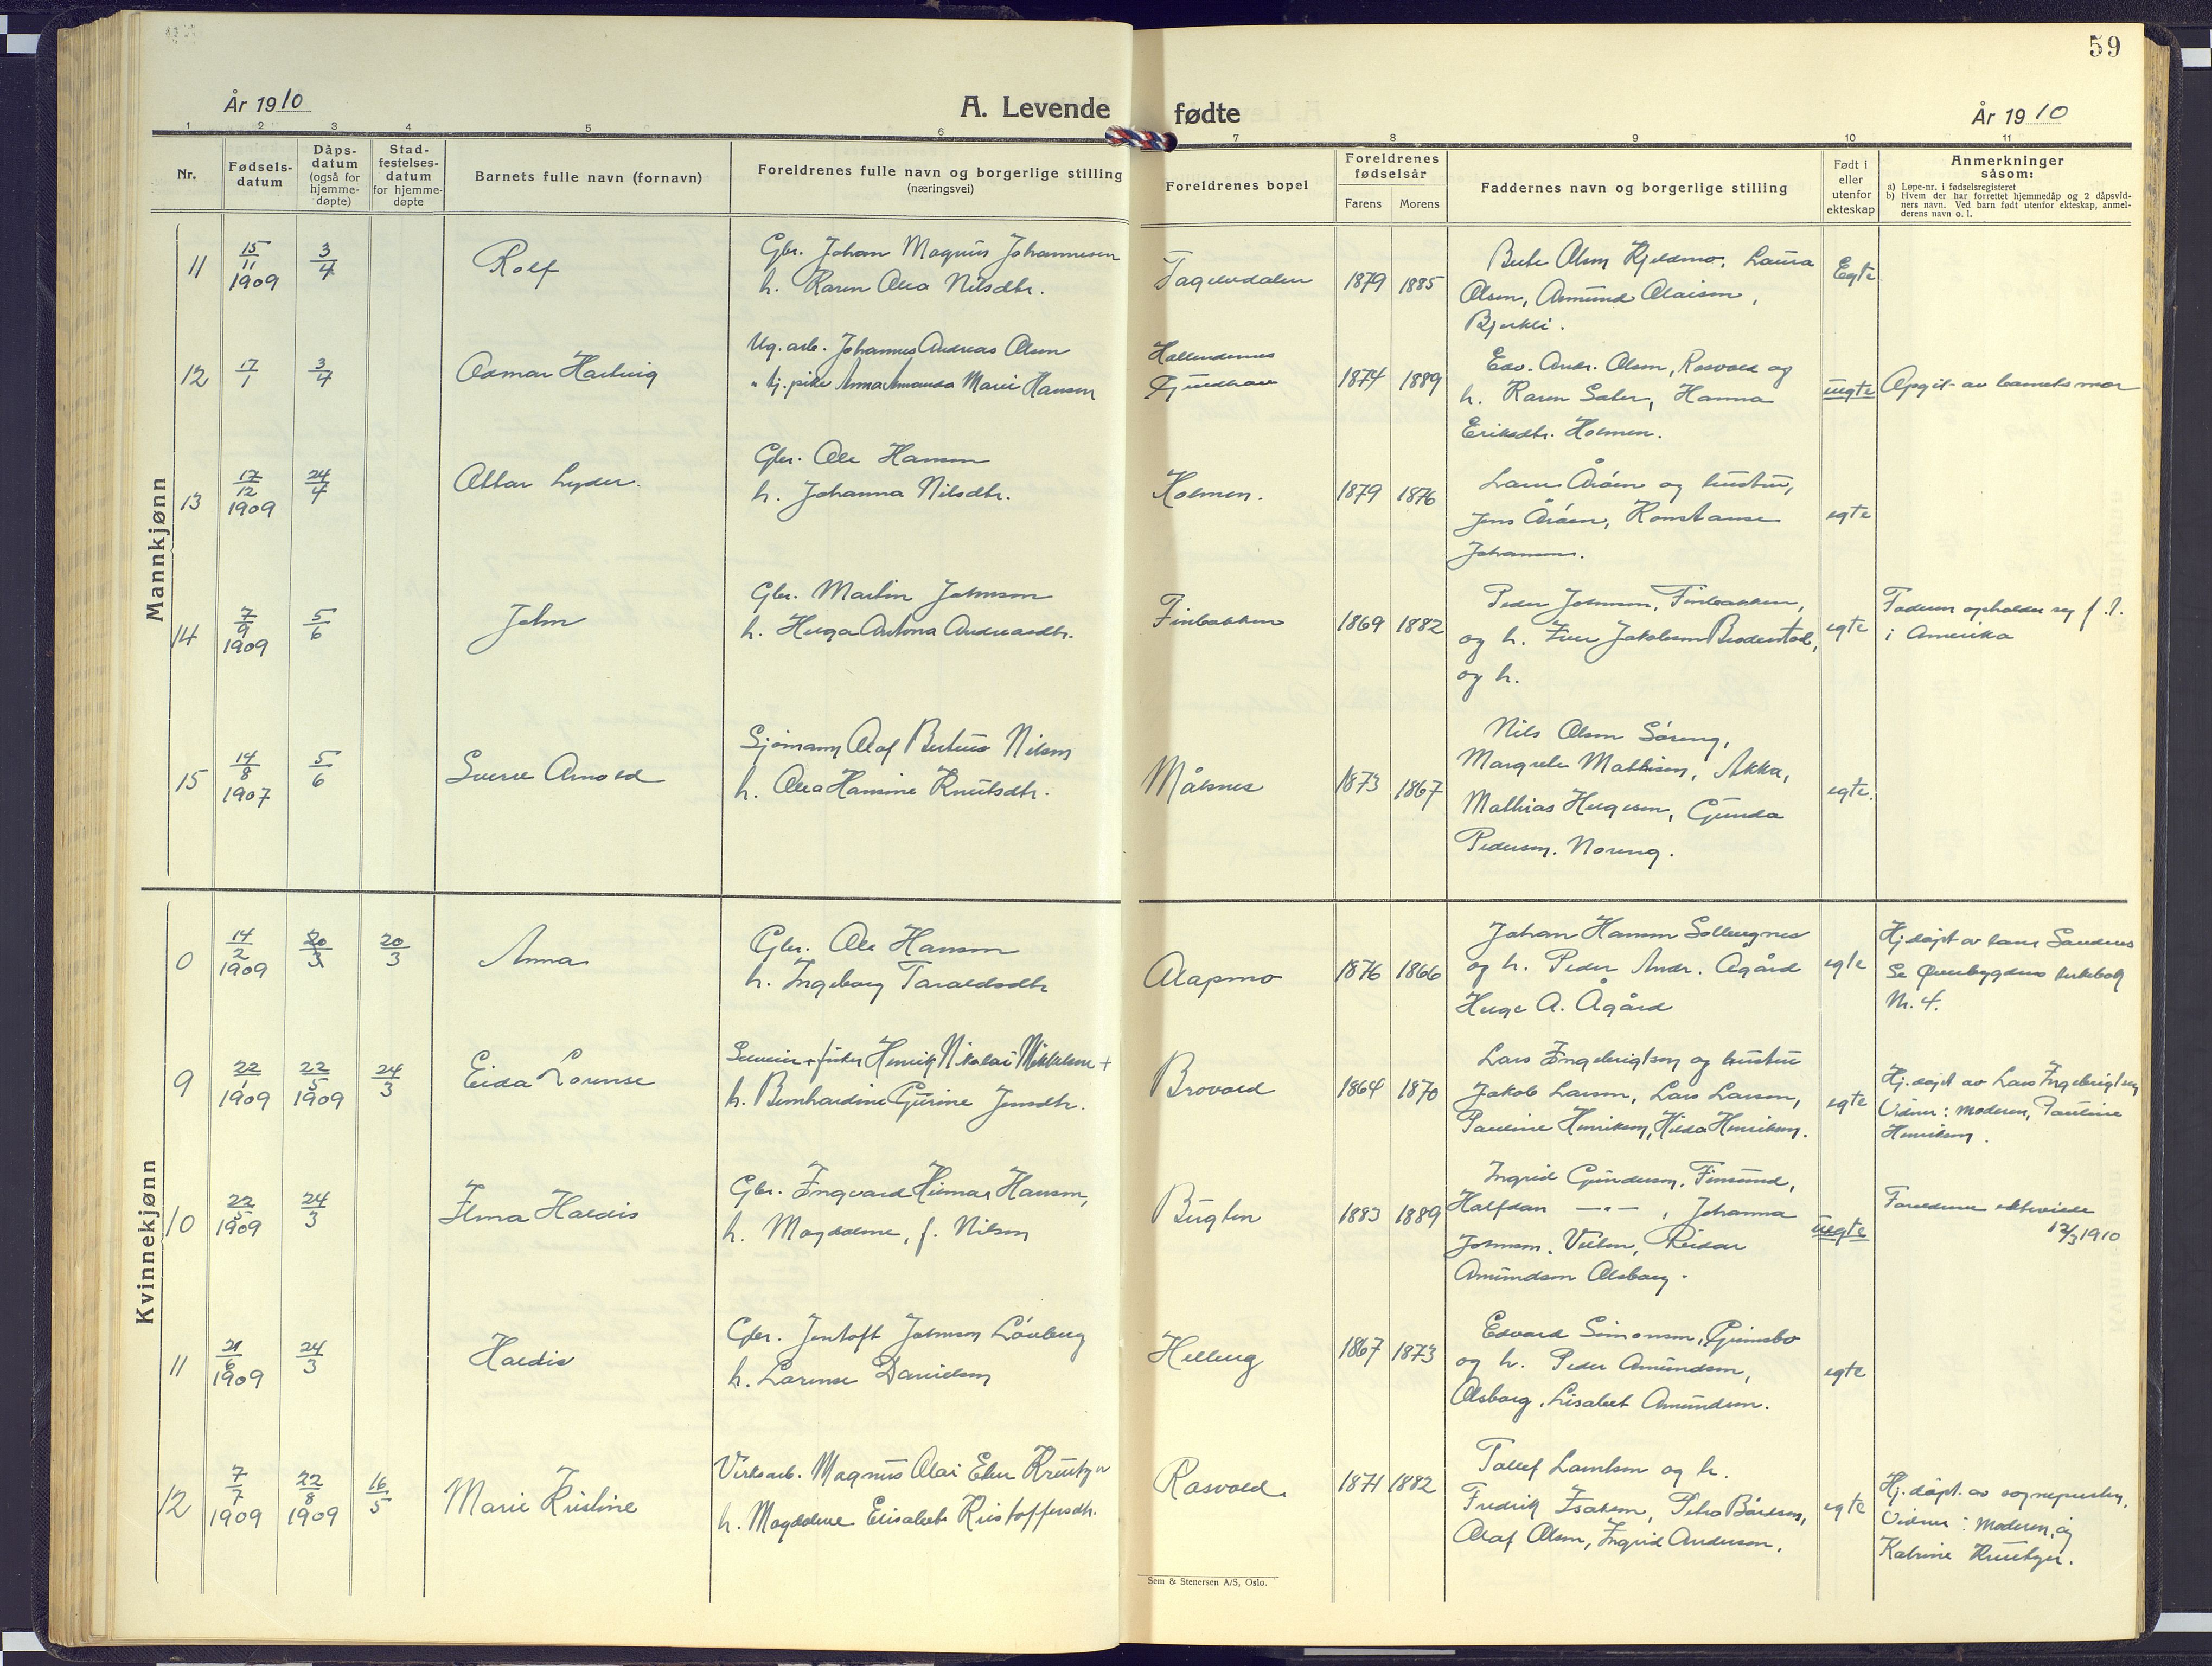 59
År 1910
A. Levende fødte
År 1910
1 2 3 4 5 6 7 8 9 10 11
Nr.
Fødsels-
datum
Dåps-
datum
(også for
hjemme-
døpte)
Stad-
festelses-
datum
for hjemme-
døpte
Barnets fulle navn (fornavn)
Foreldrenes fulle navn og borgerlige stilling
(næringsvei)
Foreldrenes bopel
Foreldrenes
fødselsår
Farens Morens
Faddernes navn og borgerlige stilling
Født i
eller
utenfor
ekteskap
Anmerkninger
såsom:
a) Løpe-nr. i fødselsregisteret
b) Hvem der har forrettet hjemmedåp og 2 dåpsvid-
ners navn. Ved barn født utenfor ekteskap, anmel-
derens navn o. l.
Mannkjønn
11 15/11 1909 3/4 Rolf
Gbr. Johan Magnus Johannesen
h. Karen Olea Nilsdtr.
1879 1885
Olsen, Laura
Olsen, Asmund Olaisen,
Bjerkli.
Egte
12 17/1 3/4 Hartvig
Ug. arb. Johannes Andreas Olsen
" tj. pike Anna Amanda Marie Hansen
1874 1889
Edv. Andr. Olsen, Rosvold og
h. Karen Sæter, Hanna
Eriksdtr. Holmen.
uegte
Opgit av barnets mor
13 17/12 1909 24/4 Ottar Lyder.
Gbr. Ole Hansen
h. Johanna Nilsdtr.
Holmen.
1879 1876
Årøen og hustru,
Jens Årøen, Konstanse
Johansen.
egte
14 7/9 1909 5/6 John
Gbr. Martin Johnson
h. Helga Antona Andreasdtr.
Finbakken
1869 1882
Peder Johnson, Finbakken,
og h. Iver Jakobsen
og h.
egte
Faderen opholder seg f. t.
i Amerika
15 14/8 1907 5/6 Sverre Arnold
Sjømann Olaf Berteus Nilsen
h. Olea Hansine Knutsdtr.
Målsnes
1873 1867
Nils Olsen Søreng,
Margrete Mathisen, Akka,
Mathias Helgesen, Gunda
Pedersen. Noreng.
egte.
Kvinnekjønn
0 14/2 1909 20/3 20/3 Anna
Gbr. Ole Hansen
h. Ingeborg Taraldsdtr
Olapmo
1876 1866
Johan Hansen
og h. Peder Andr. Ågård
Helge A. Ågård
egte
Hj.døpt av
Se Øverbygdens kirkebok
Nr. 4.
9 22/1 1909 22/5 1909 24/3 Eida Lorense
fisker Henrik Nikolai Mikkelsen +
h. Bernhardine Gurine Jensdtr.
Brovold
1864 1870
Lars Ingebrigtsen og hustru
Jakob Larsen, Lars Larsen,
Pauline Henriksen, Hilda Henriksen.
egte
Hj.døpt av Lars Ingebrigtsen
Vidner: Moderen, Pauline
Henriksen.
10 22/5 1909 24/3 Haldis
Gbr. Ingvard Hilmar Hansen,
h. Magdalene, f. Nilsen
1883 1889
Ingrid Gundersen, Finsund,
Halfdan —"— , Johanna
Johnson, Reidar
Amundsen Olsborg.
uegte
Foreldrene ekteviede
12/3 1910
11 21/6 1909 24/3 Haldis
Gbr. Jentoft Johnson Løvberg
h. Lorense Danielsen
1867 1873
Edvard Simonsen,
og h. Peder Amundsen,
Olsborg, Lisabet Amundsen.
egte
12 7/7 1909 22/8 1909 16/5 Marie Kristine
Magnus Olai
h. Magdalene Elisabet Kristoffersdtr.
Rosvold
1871 1882
Tollef Lambsen og h.
Fredrik Isaksen, Petra Bårdsen,
Olaf Olsen, Ingrid Andersen.
egte
Hj.døpt av sognepresten,
Vidner: Moderen, og
Katrine
Sem & Stenersen A/S, Oslo.